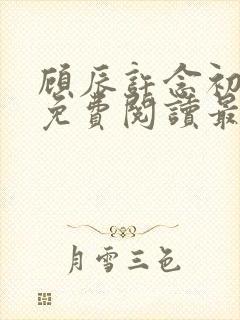 顾辰許念初
免費閱讀最
月雪三色